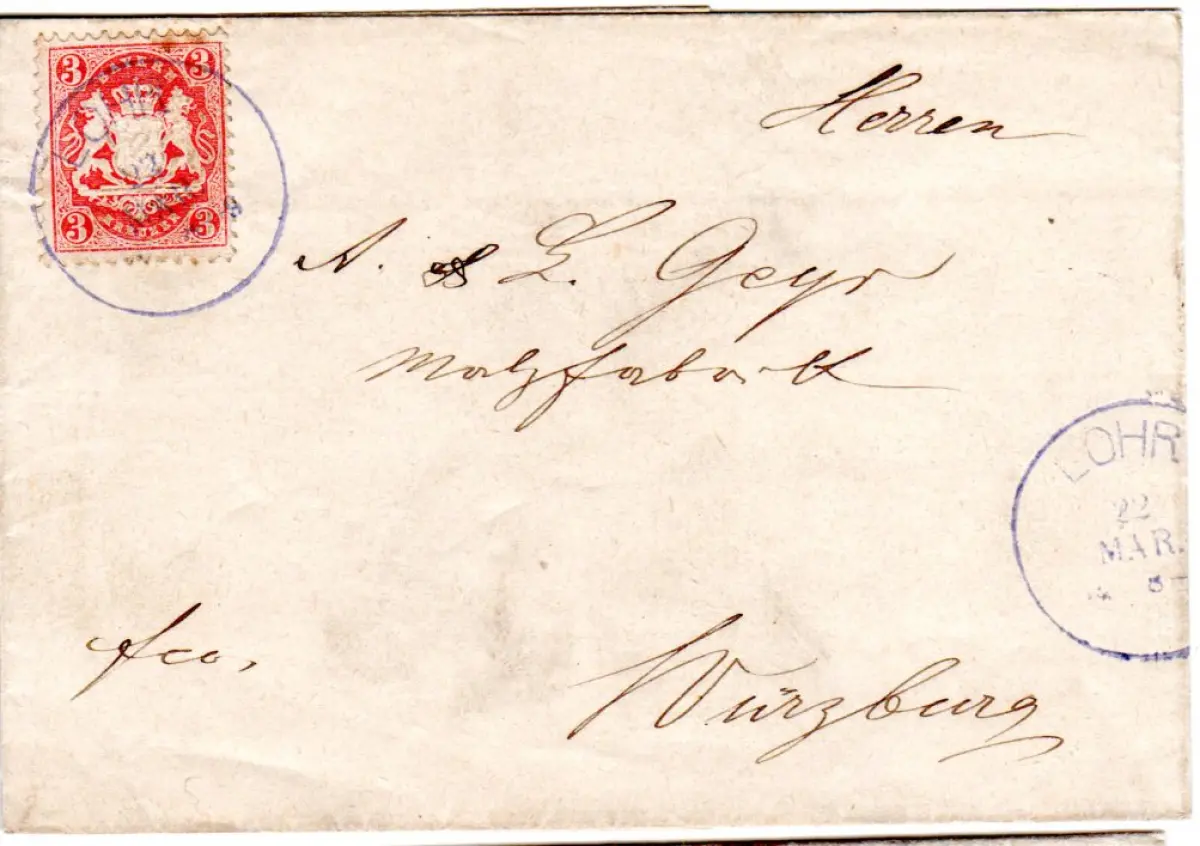 3 3
BAYERN
3 3
KREUZER
Herren
A. & L. Geyr
Malzfabrik
LOHR
22
MAR.
fco.
Würzburg